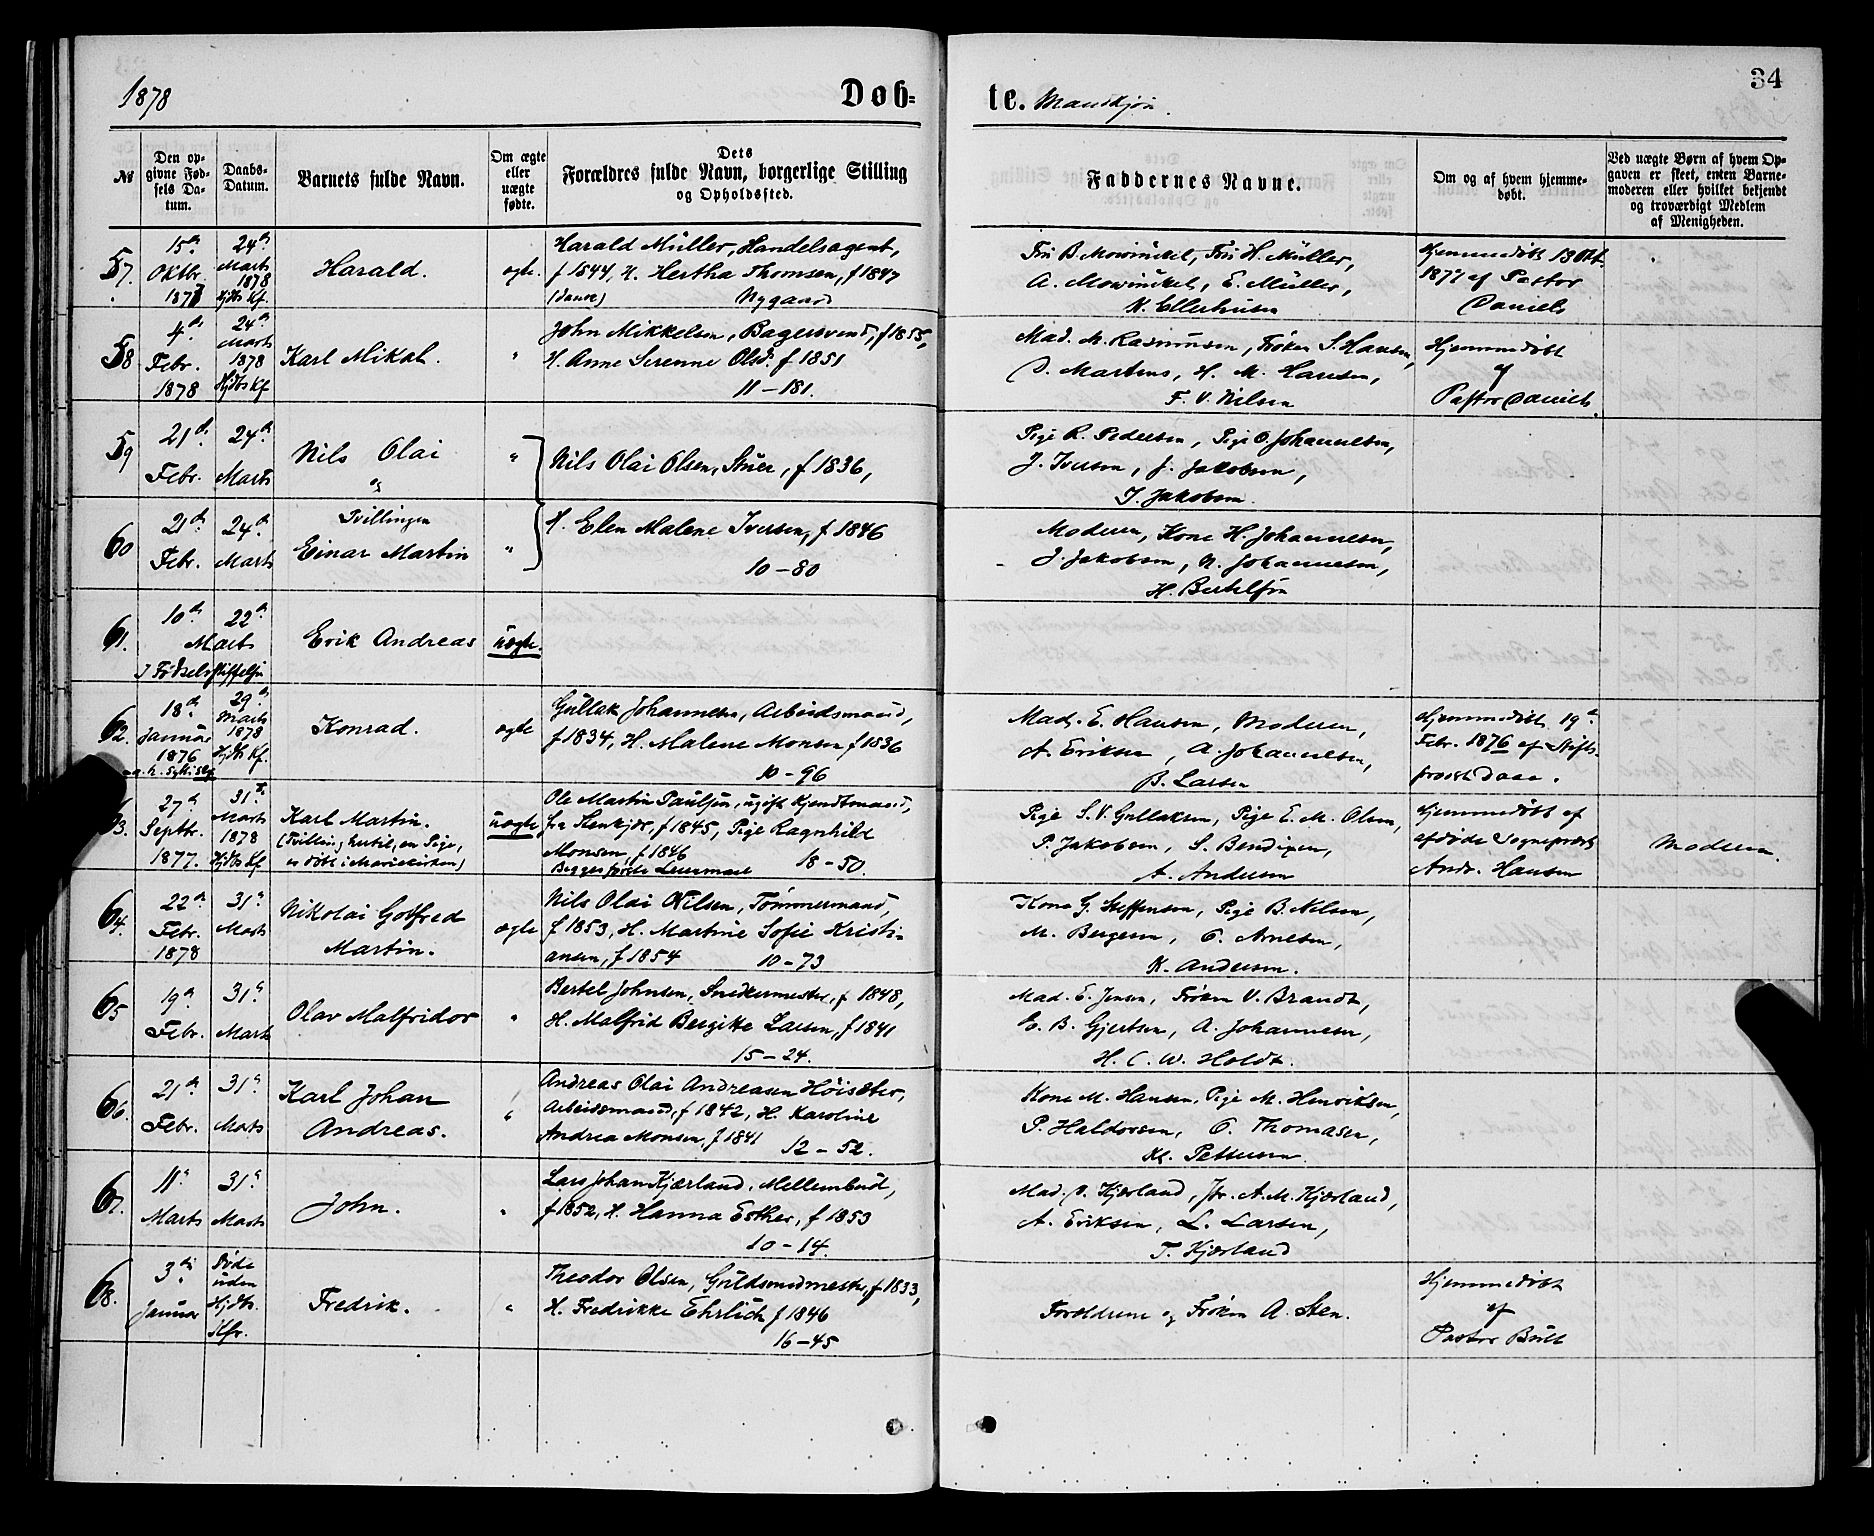 1878
Døb-
te. Mandkjøn.
34
№
Den op-
givne Fød-
sels Da-
tum.
Daabs-
Datum.
Barnets fulde Navn.
Om ægte
eller
uægte
fødte.
Dets
Forældres fulde Navn, borgerlige Stilling
og Opholdssted.
Faddernes Navne.
Om og af hvem hjemme-
døbt.
Ved uægte Børn af hvem Op-
gaven er skeet, enten Barne-
moderen eller hvilket bekjendt
og troværdigt Medlem
af Menigheden.
57.
15de
Oktbr.
1877
24de
Marts
1878
Hjdbs Kf.
Harald.
ægte.
Harald Müller, Handelsagent,
f 1844, H. Hertha Thomsen, f 1847
Nygaard
Fru B. Mowinckel, Fru H. Müller,
A. Mowinckel, E. Müller,
K. Ellerhusen
Hjemmedøbt 13 Okt.
1877 af Pastor
Daniels
58
4de
Febr.
1878
24de
Marts
1878
Hjdbs Kf
Karl Mikal.
"
John Mikkelsen, Bagersvend, f 1855,
H. Anne Serenne Olsd. f 1851
11-181.
Mad. M. Rasmussen, Frøken S. Hansen,
D. Martens, H. M. Hansen,
F. V. Nilsen
Hjemmedøbt
af
Pastor Daniels.
59
21de
Febr.
24de
Marts
Nils Olai
og
"
Nils Olai Olsen, Stuer, f 1836,
Pige R. Pedersen, Pige O. Johannesen,
J. Iversen, J. Jakobsen,
I. Jakobsen.
60
21de
Febr.
24de
Marts
Tvillingen
Einar Martin
"
H. Elen Malene Iversen, f 1846
10-80
Moderen, Kone H. Johannesen,
J. Jakobsen, N. Johannesen,
H. Bertelsen
61.
10de
22de
Marts
I Fødselsstiftelsen
Erik Andreas
uægte.
62.
18de
Januar
1876
29de
Marts
1878
Hjdbs Kf.
Konrad.
ægte
Gullak Johannesen, Arbeidsmand,
f 1834, H. Malene Monsen f 1836
10-96
Mad. E. Hansen, Moderen,
A. Eriksen, A. Johannesen,
B. Larsen
Hjemmedøbt 19de
Febr. 1876 af Stifts-
provst Daae.
63.
27de
Septbr.
1877.
31te
Marts
1878
Hjdbs Kf
Karl Martin.
(Tvilling hertil, en Pige,
er døbt i Mariekirken)
uægte
Ole Martin Paulsen, ugift Kjendtmand,
fra Stenkjær, f 1845, Pige Ragnhild
Monsen, f 1846 18-50.
Begges første Leiermaal
Pige S. V. Gullaksen, Pige E. M. Olsen,
P. Jakobsen, S. Bendixen,
A. Andersen
Hjemmedøbt af
afdøde Sogneprest
Andr. Hansen
Moderen.
64.
22de
Febr.
1878
31te
Marts
Nikolai Gotfred
Martin.
ægte
Nils Olai Nilsen, Tømmermand,
f 1853, H. Martine Sofie Kristi-
ansen, f 1854 10-73
Kone G. Steffensen, Pige B. Nilsen,
M. Bergesen, O. Arnesen,
K. Andersen.
65
19de
Febr.
31te
Marts
Olav Malfridor
"
Bertel Johnsen, Snedkermester, f 1848,
H. Malfrid Bergitte Larsen, f 1841
15-24.
Mad. E. Jensen, Frøken V. Brandt,
E. B. Gjertsen, A. Johannesen,
H. C. W. Holdt.
66.
21de
Febr.
31te
Marts
Karl Johan
Andreas.
"
Andreas Olai Andreasen Høisæter,
Arbeidsmand, f 1842, H. Karoline
Andrea Monsen, f 1841 12-52.
Kone M. Hansen, Pige M. Henriksen,
P. Haldorsen, O. Thomasen,
Kl. Pettersen
67.
11te
Marts
31te
Marts
John.
"
Lars Johan Kjærland, Mellembud,
f 1852, H. Hanna Esther, f 1853
10-14.
Mad. D. Kjærland, Jfr. A. M. Kjærland,
A. Eriksen, L. Larsen,
T. Kjærland
68.
3die
Januar
Døde
uden
Hjdbs.
Kfr.
Fredrik.
"
Theodor Olsen, Guldsmedmester, f 1833,
H. Fredrikke Ehrlich f 1846
16-45
Forældrene og Frøken A. Sten.
Hjemmedøbt
af
Pastor Bull